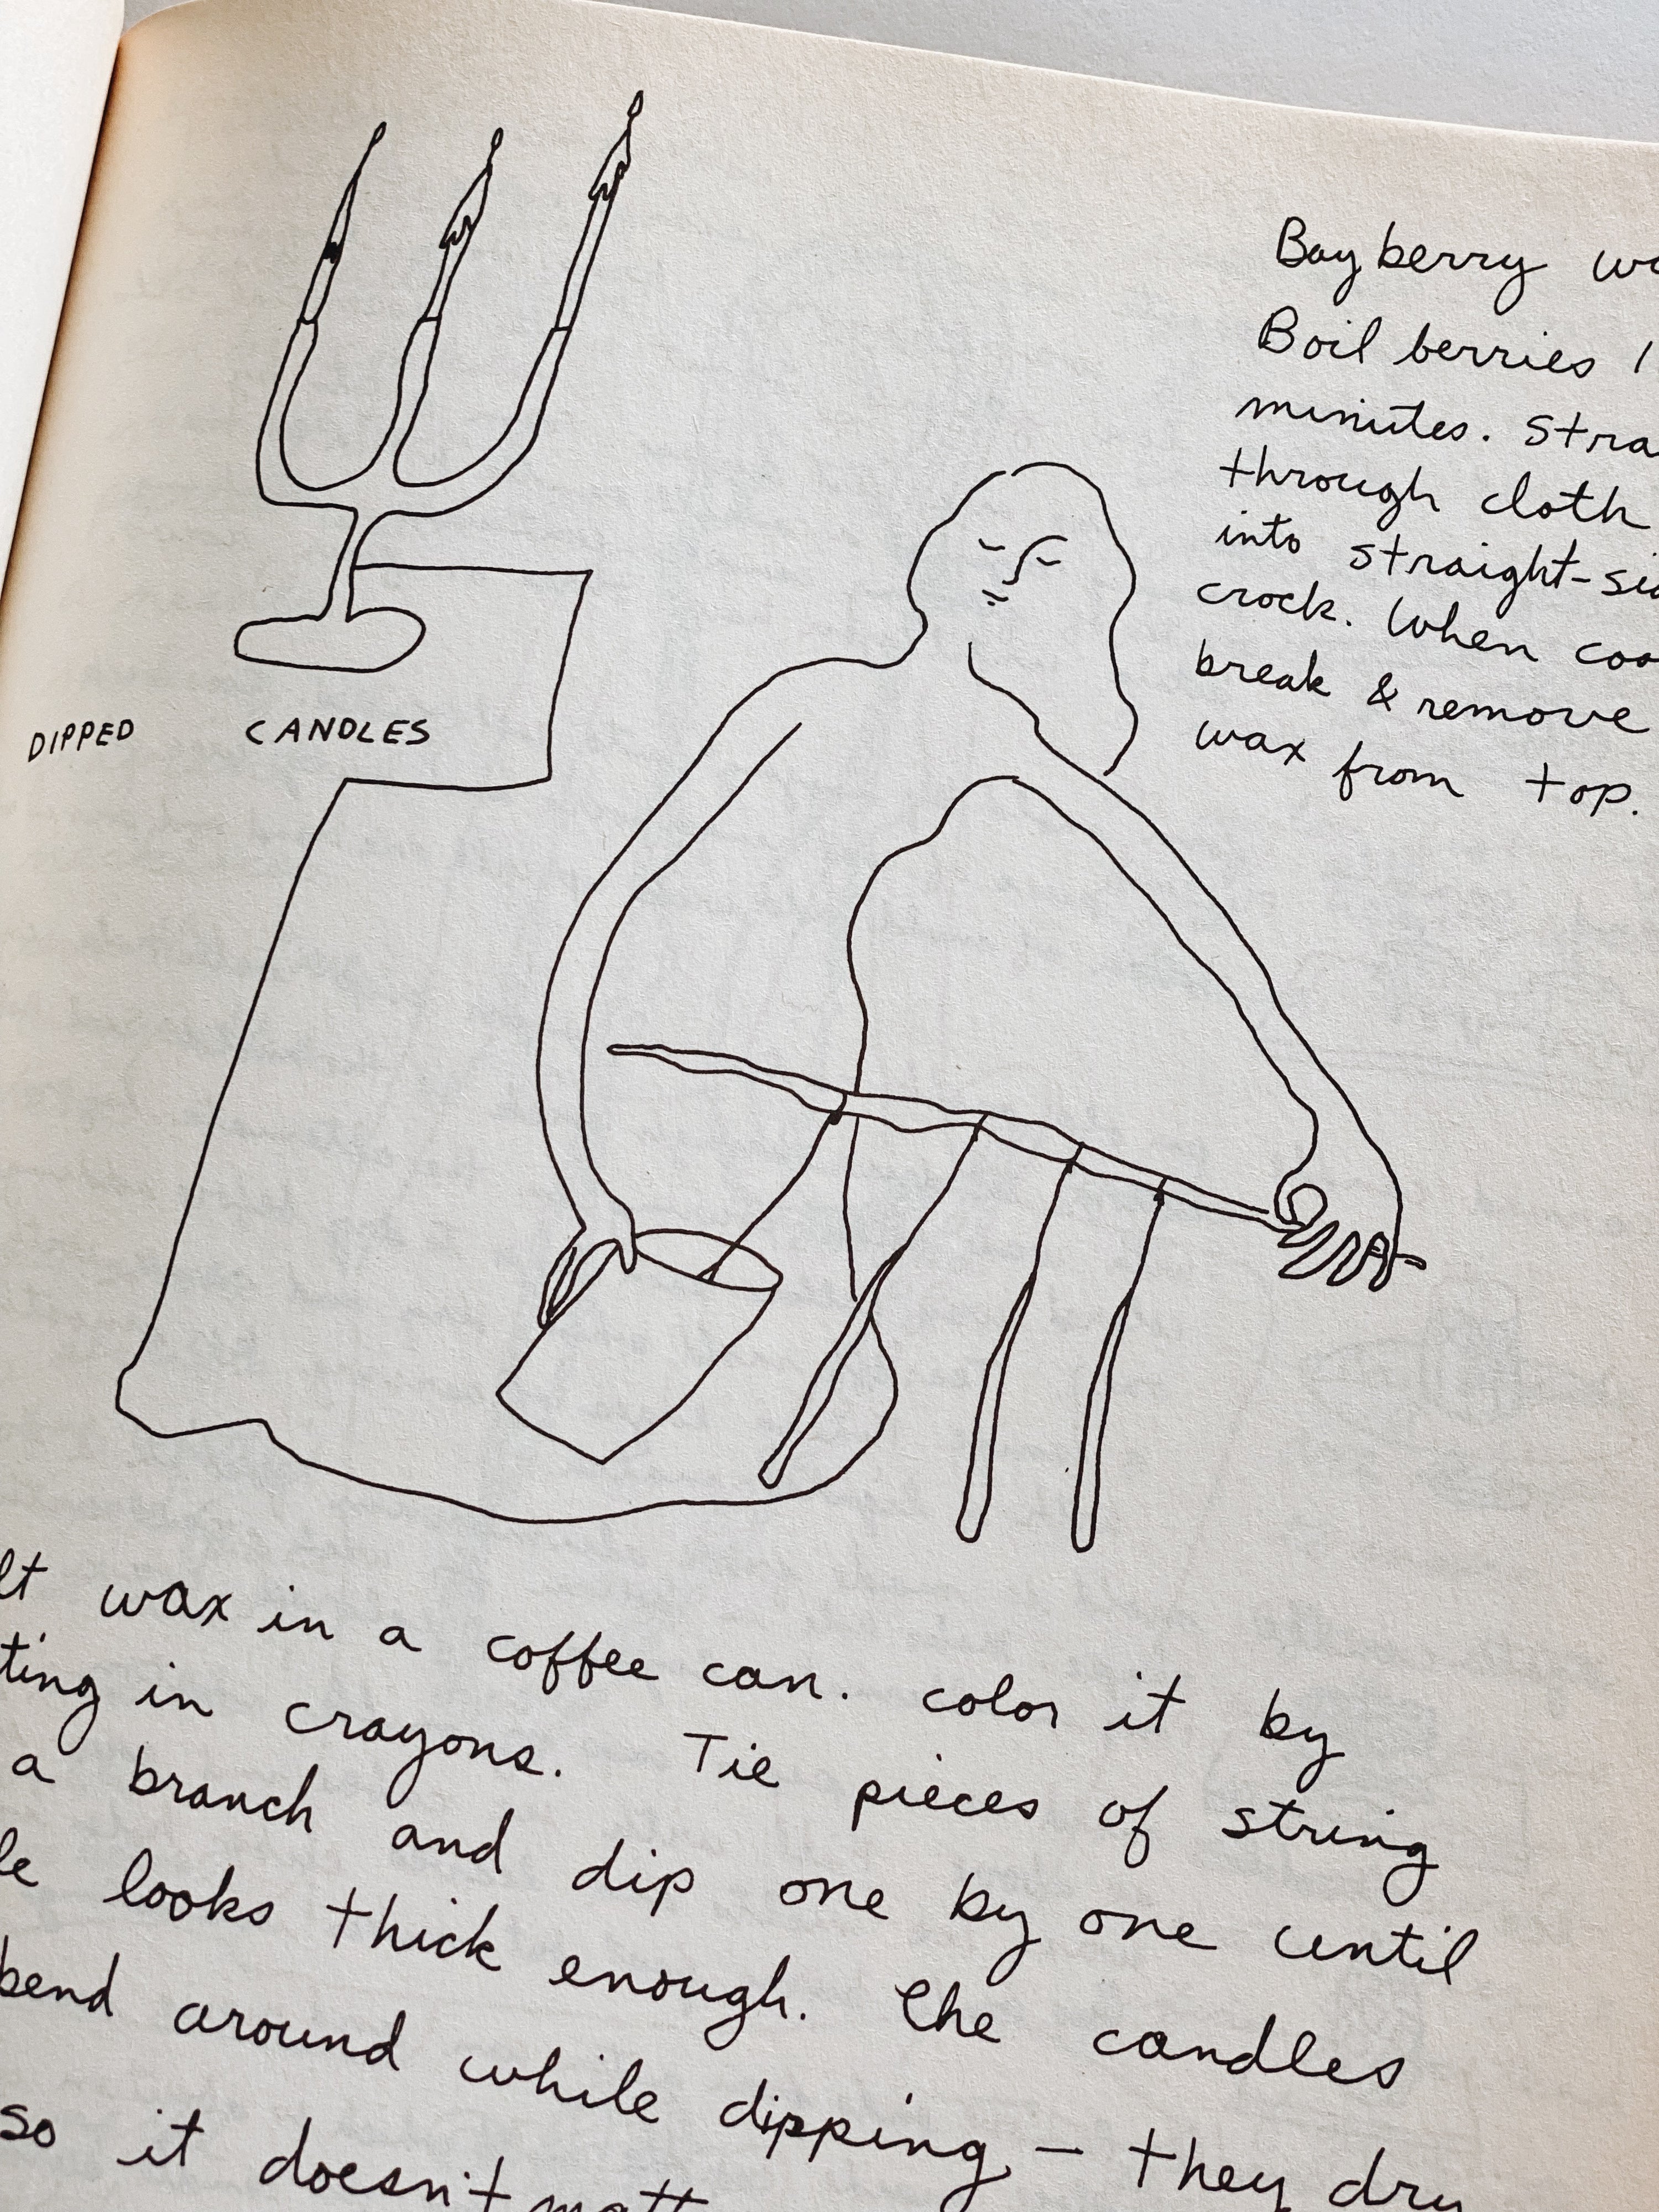 Bayberry
Boil berries
minutes.
through cloth
into straight-
crock. When
break & remove
wax from top.
DIPPED CANDLES
wax in a coffee can. color it by
in crayons. Tie pieces of string
a branch and dip one by one until
looks thick enough. The candles
bend around while dipping - they dry
so it doesn't